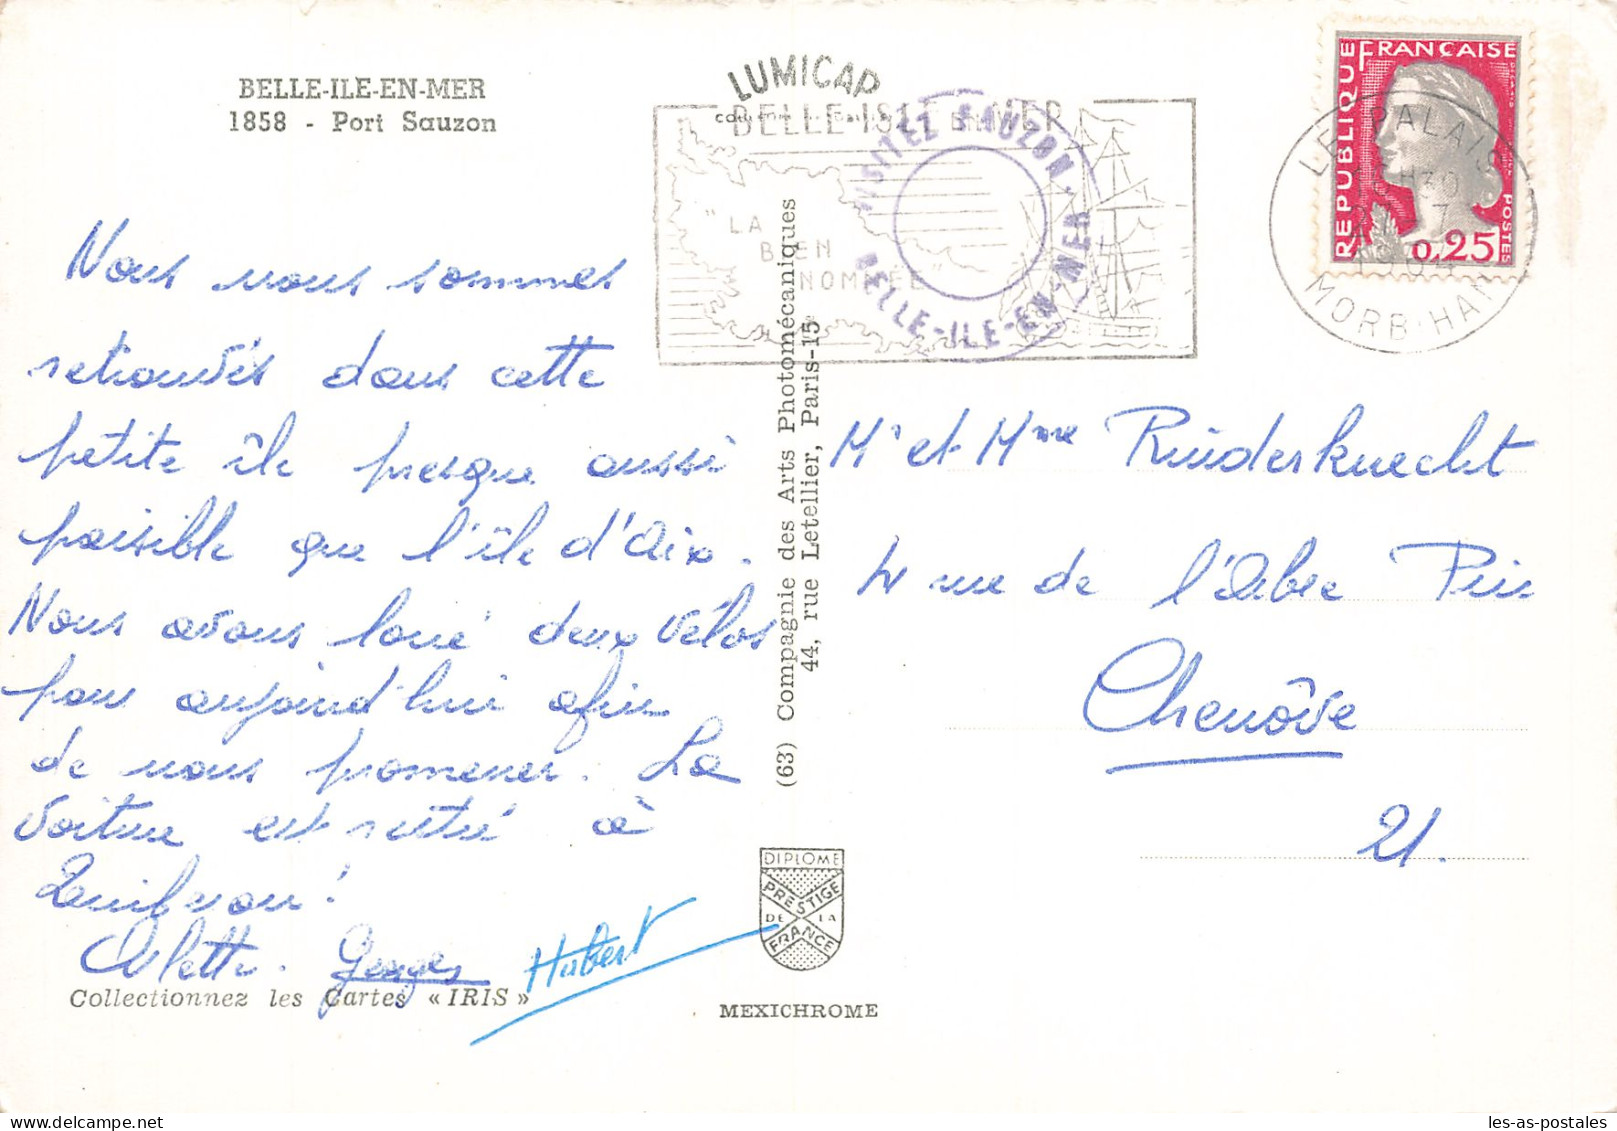 BELLE-ILE-EN-MER
1858 - Port Sauzon
LUMICAP
BELLE-ISLE EN MER
"LA
BIEN
NOMMÉE"
VISITEZ SAUZON
BELLE-ILE-EN-MER
RÉPUBLIQUE FRANÇAISE
POSTES
0,25
LE PALAIS
MORBIHAN
Nous nous sommes
retrouvés dans cette
petite île presque aussi
paisible que l'île d'Aix.
Nous avons loué deux vélos
pour aujourd'hui afin
de nous promener. La
voiture est restée à
Quiberon!
Arlette. Georges Hubert
Collectionnez les Cartes « IRIS »
(63) Compagnie des Arts Photomécaniques
44, rue Letellier, Paris-15e
DIPLOME
PRESTIGE
DE LA
FRANCE
MEXICHROME
Mr et Mme Rinderknecht
4 rue de l'Arbre Pin
Chenôve
21.
les-as-postales